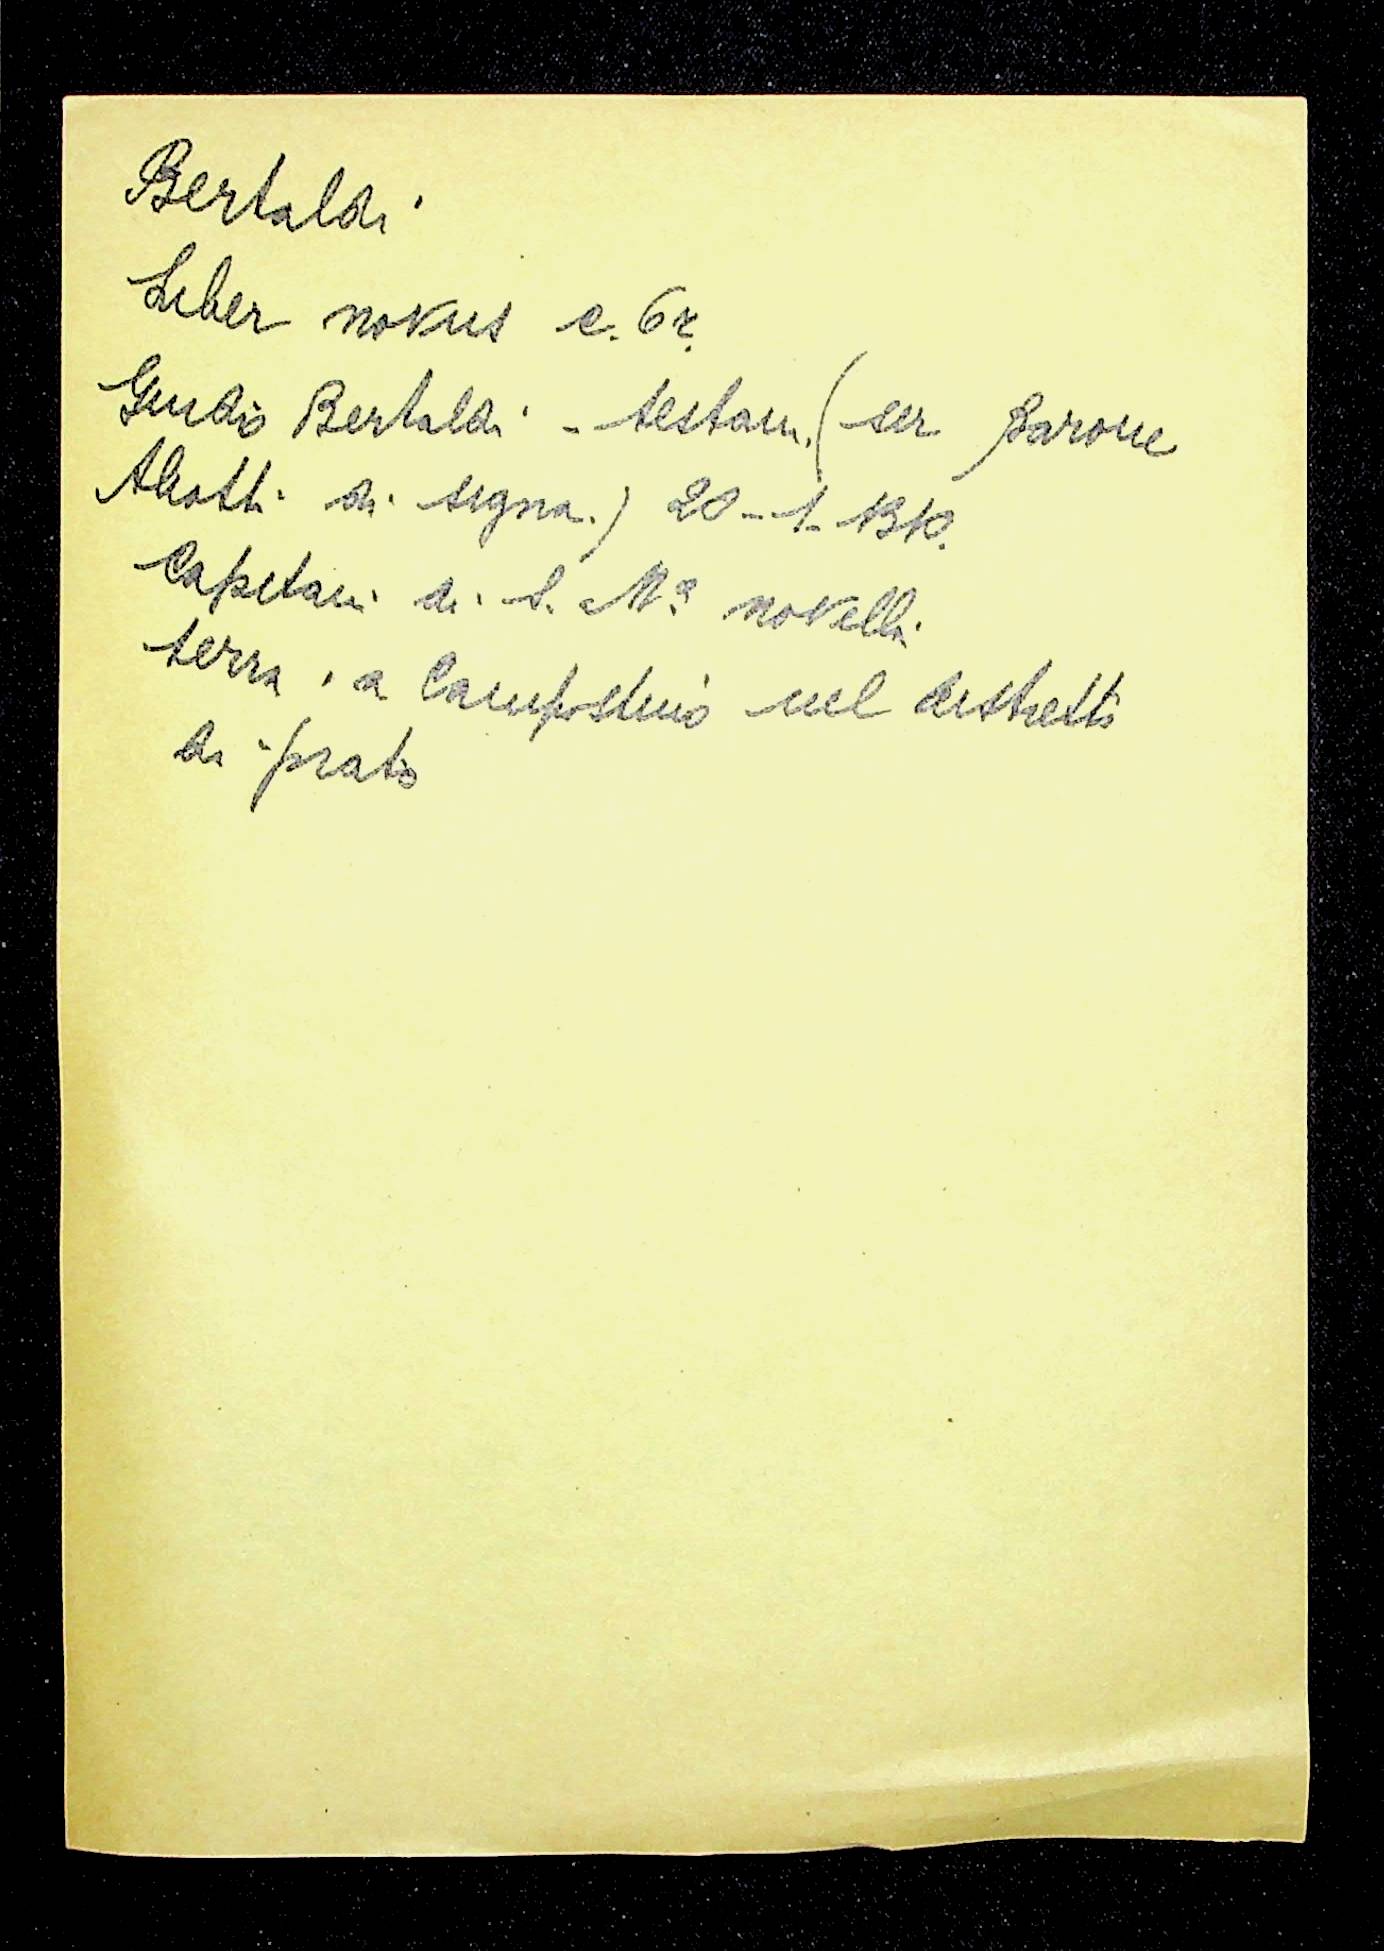 Bertaldi
Liber novus c. 6r.
Guido Bertaldi - testam. (ser
di signa.) 20-1-1310.
Capitani di S. Mª novella
terra a Campostino nel distretto
di prato